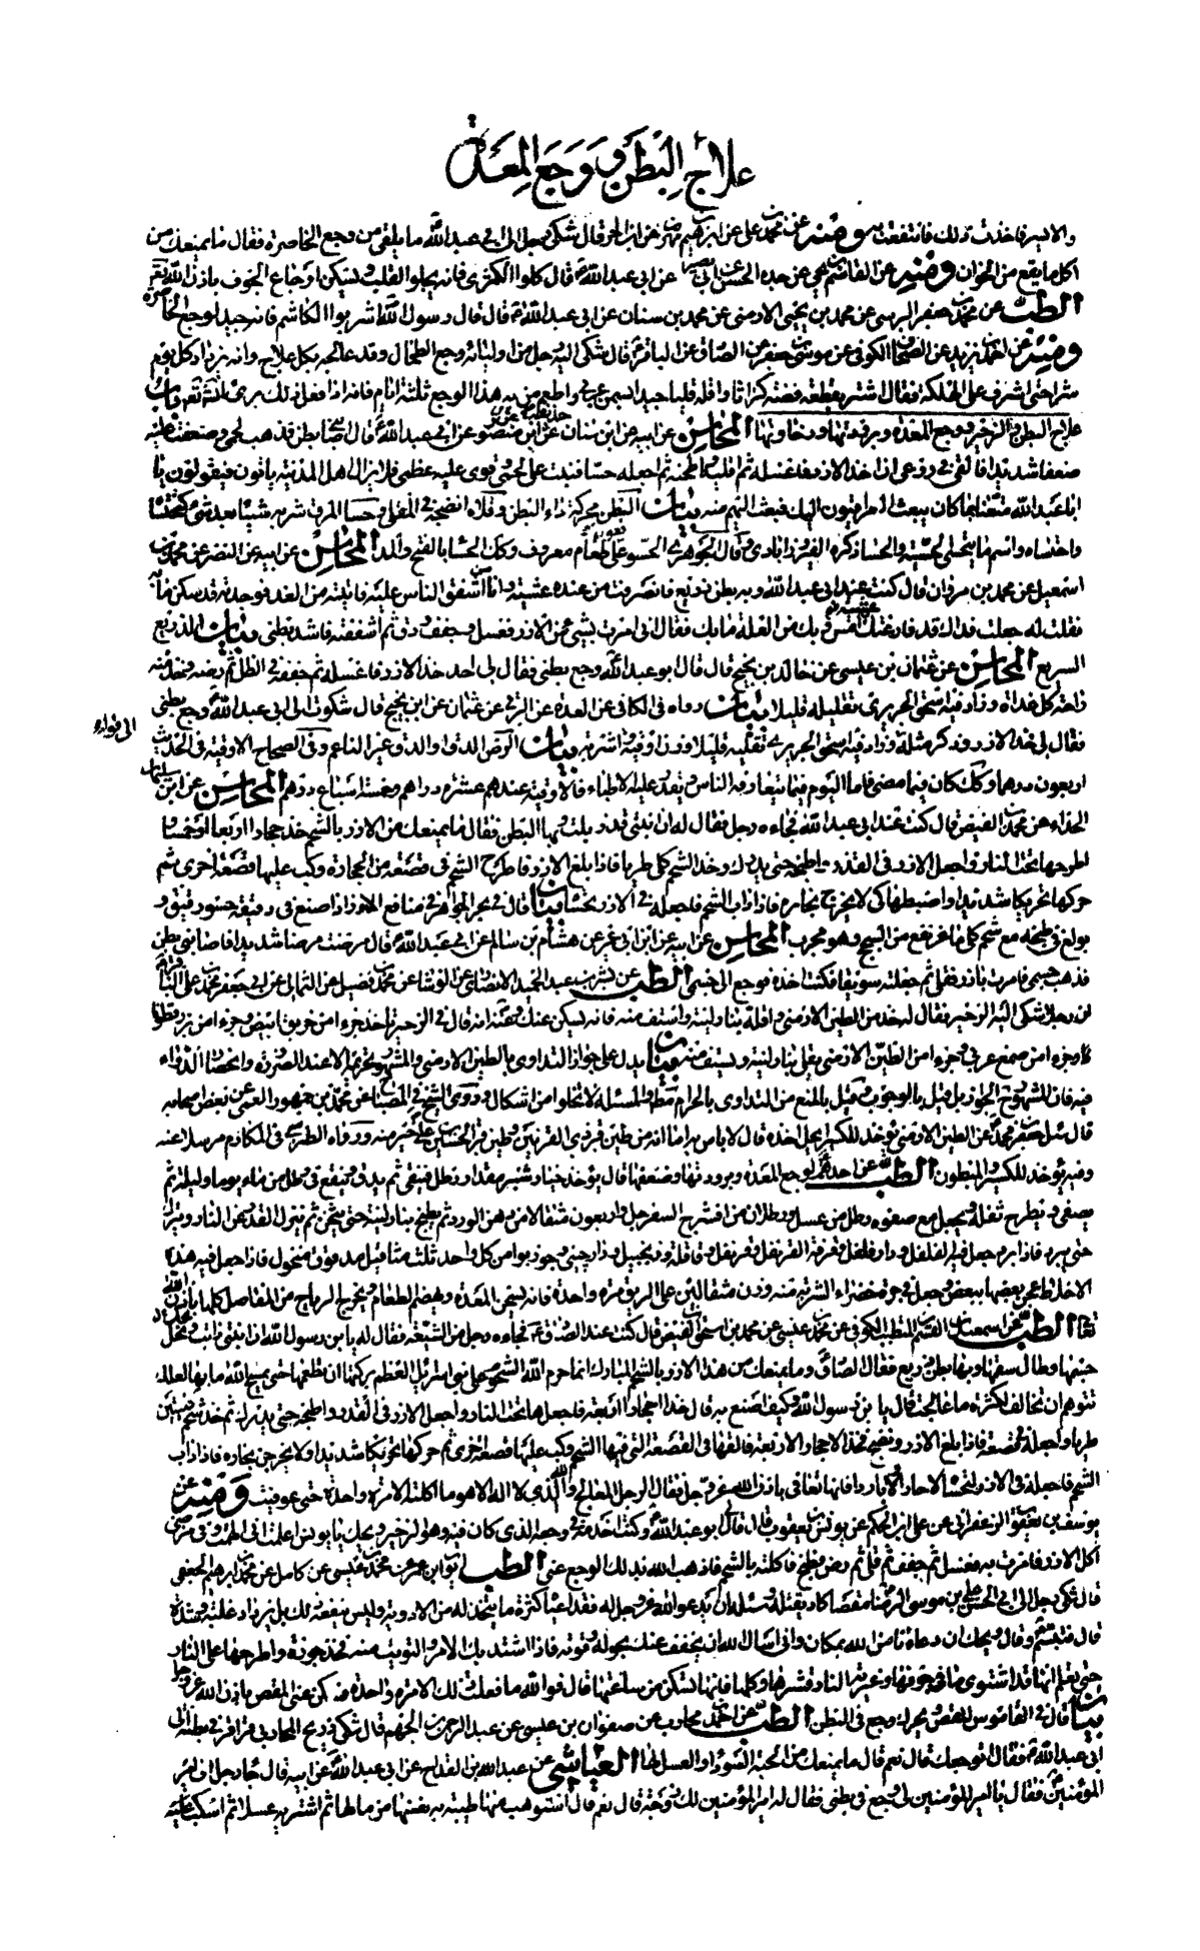 علاج البطن و وجع المعدة
والايسر فاخذت ذلك فانتفعت به ومنه عن محمد بن علي عن ابراهيم بن عن قال شكى رجل الى ابي عبد الله ما يلقى من وجع الخاصرة فقال ما يمنعك من
اكل ما يقع من الخوان ومنه عن القاسم بن يحيى عن جده الحسن عن ابي بصير عن ابي عبد الله قال كلوا الكمثرى فانه يجلو القلب ويسكن اوجاع الجوف باذن الله تعالى
الطب عن محمد بن جعفر البرسي عن محمد بن يحيى الارمني عن محمد بن سنان عن ابي عبد الله قال قال رسول الله اشربوا الكاشم فانه جيد لوجع الخاصرة
ومنه عن احمد بن يزيد عن الصحاف الكوفي عن موسى بن جعفر عن الصادق عن الباقر قال شكى اليه رجل من اوليائه وجع الطحال وقد عالجه بكل علاج وانه يزداد كل يوم
شرا حتى اشرف على الهلكة فقال اشتر بقطعة فضة كراثا واقله قليا جيدا بسمن عربي واطعم من به هذا الوجع ثلثة ايام فانه اذا فعل ذلك برئ انشاء الله تعالى باب
علاج البطن والزحير ووجع المعدة وبرودتها ورخاوتها المحاسن عن ابيه عن ابن سنان عن ابي عبد الله قال اصابني بطن فذهب لحمي وضعفت عليه
ضعفا شديدا فالقي في روعي ان اخذ الارز فاغسله ثم اقليه واطحنه ثم اجعله حسا فنبت عليه لحمي وقوي عليه عظمي فلا يزال اهل المدينة ياتون فيقولون يا
ابا عبد الله متعنا بما كان يبعث العراقيون اليك فبعثت اليهم منه بيان البطن محركة داء البطن وقلاه انضجه في المقلى وحسا المرق شربه شيئا بعد شيء كتحساه
واحتساه واسم ما يتحسى الحسية والحسا ذكره الفيروزآبادي وقال الجوهري الحسو على فعول طعام معروف وكذلك الحساء بالفتح والمد المحاسن عن ابيه عن النضر عن محمد بن
اسمعيل عن محمد بن مروان قال كنت عند ابي عبد الله وبه بطن ذريع فانصرفت من عنده عشية وانا من اشفق الناس عليه فاتيته من الغد فوجدته قد سكن ما به
فقلت له جعلت فداك قد فارقتك عشية امس وبك من العلة ما بك فقال اني امرت بشيء من الارز فغسل وجفف ودق ثم استففته فاشتد بطني بيان الذريع
السريع المحاسن عن عثمان بن عيسى عن خالد بن نجيح قال قال ابو عبد الله وجع بطني فقال لي احد خذ الارز فاغسله ثم جففه في الظل ثم رضه وخذ منه
راحة كل غداة وزاد فيه اسحق الجريري تقليه قليلا بيان رواه في الكافي عن العدة عن البرقي عن عثمان عن ابن نجيح قال شكوت الى ابي عبد الله وجع بطني
الى نوادر
فقال لي خذ الارز وذكر مثله وزاد فيه اسحق الجريري تقليه قليلا وزن اوقية واشربه بيان الرض الدق او الدق وغير الناعم وفي الصحاح الاوقية في الحديث
اربعون درهما وكذلك كان فيما مضى فاما اليوم فيما يتعارفه الناس ويقدر عليه الاطباء فالاوقية عندهم عشرة دراهم وخمسة اسباع درهم المحاسن عن ابن سليمان
الحذاء عن محمد بن الفيض قال كنت عند ابي عبد الله فجاءه رجل فقال له ان ابنتي قد ذبلت وبها البطن فقال ما يمنعك من الارز بالشحم خذ حجارا اربعا او خمسا
اطرحها تحت النار واجعل الارز في القدر واطبخه حتى يدرك وخذ الشحم كلى طريا فاذا بلغ الارز فاطرح الشحم في قصعة مع الحجارة وكب عليها قصعة اخرى ثم
حركها تحريكا شديدا واضبطها كي لا يخرج بخاره فاذا ذاب الشحم فاجعله في الارز تحساه بيان قال في بحر الجواهر في منافع الارز اذا صنع في دقيقه حسو رقيق و
بولغ في طبخه مع شحم كلى ماعز نفع من السحج وهو مجرب المحاسن عن ابيه عن ابن ابي عمير عن هشام بن سالم عن ابي عبد الله قال مرضت مرضا شديدا فاصابني بطن
فذهب جسمي فامرت بارز فقلي ثم جعلته سويقا فكنت اخذه فرجع الي جسمي الطب عن بشر بن عبد الحميد الانصاري عن الوشاء عن محمد بن فضيل عن الثمالي عن ابي جعفر محمد بن علي الباقر
ان رجلا شكى اليه الزحير فقال له خذ من الطين الارمني واقله بنار لينة واستف منه فانه يسكن عنك وعنه انه قال في الزحير تاخذ جزء من خربق ابيض وجزء من بزر قطونا
وجزء من صمغ عربي وجزء من الطين الارمني يقلى بنار لينة ويستف منه بيان يدل على جواز التداوي بالطين الارمني والمشهور تحريمه الا عند الضرورة وانحصار الدواء
فيه فان المشهور الجواز بل قيل بالوجوب وقيل بالمنع من التداوي بالحرام مطلقا والمسئلة لا تخلو من اشكال وروى الشيخ في المصباح عن محمد بن جمهور العمي عن بعض اصحابه
قال سئل جعفر بن محمد عن الطين الارمني يؤخذ للكسير ايحل اخذه قال لا باس به اما انه من طين قبر ذي القرنين وطين قبر الحسين بن علي خير منه ورواه الطبرسي في المكارم مرسلا عنه
وفيه يؤخذ للكسير والمبطون الطب عن احدهم لوجع المعدة وبرودتها وضعفها قال يؤخذ خيار شنبر مقدار رطل فينقى ثم يدق وينقع في رطل من ماء يوما وليلة ثم
يصفى ويطرح ثفله ويجعل مع صفوه رطل من عسل ورطلان من افشرج السفرجل واربعون مثقالا من دهن الورد ثم يطبخ بنار لينة حتى يثخن ثم ينزل القدر عن النار ويتركه
حتى يبرد فاذا برد جعل فيه الفلفل ودار فلفل وقرفة القرنفل وقرنفل وقاقلة وزنجبيل ودارچيني وجوزبوا من كل واحد ثلث مثاقيل مدقوق منخول فاذا جعل فيه هذه
الاخلاط عجن بعضها ببعض وجعل في جرة خضراء الشربة منه وزن مثقالين على الريق مرة واحدة فانه يسخن المعدة ويهضم الطعام ويخرج الرياح من المفاصل كلها باذن الله
تعالى الطب عن اسمعيل بن القاسم المتطبب الكوفي عن محمد بن عيسى عن محمد بن اسحق بن الفيض قال كنت عند الصادق فجاءه رجل من الشيعة فقال له يا بن رسول الله ان ابنتي ذابت ونحل
جسمها وطال سقمها وبها بطن ذريع فقال الصادق وما يمنعك من هذا الارز بالشحم المبارك انما حرم الله الشحوم على بني اسرائيل لعظم بركتها ان تطعمها حتى يمسح الله ما بها لعلك
تتوهم ان تخالف لكثرة ما عالجت قال يا بن رسول الله وكيف اصنع به قال خذ احجارا اربعة فاجعلها تحت النار واجعل الارز في القدر واطبخه حتى يدرك ثم خذ شحم كليتين
طريا واجعله في قصعة فاذا بلغ الارز ونضج فخذ الاحجار الاربعة فالقها في القصعة التي فيها الشحم وكب عليها قصعة اخرى ثم حركها تحريكا شديدا ولا يخرجن بخاره فاذا ذاب
الشحم فاجعله في الارز لتحساه لا حارا ولا باردا فانها تعافى باذن الله عز وجل فقال الرجل المعالج والله الذي لا اله الا هو ما اكلته الا مرة واحدة حتى عوفيت ومنه عن
يوسف بن يعقوب الزعفراني عن علي بن الحكم عن يونس بن يعقوب قال قال ابو عبد الله وكنت اخدمه في وجعه الذي كان فيه وهو الزحير ويحك يا يونس اعلمت اني الهمت في مرضي
اكل الارز فامرت به فغسل ثم جفف ثم قلي ثم رض فطبخ فاكلته بالشحم فاذهب الله بذلك الوجع عني الطب ايوب بن عمر عن محمد بن عيسى عن كامل عن محمد بن ابراهيم الجعفي
قال شكى رجل الى ابي الحسن علي بن موسى الرضا مغصا كاد يقتله وسئله ان يدعو الله عز وجل له فقد اعياه كثرة ما يتخذ له من الادوية وليس ينفعه ذلك بل يزداد غلبة وشدة
قال فتبسم وقال ويحك ان دعاءنا من الله بمكان واني اسال الله ان يخفف عنك بحوله وقوته فاذا اشتد بك الامر والتويت منه فخذ جوزة واطرحها على النار
حتى تعلم انها قد اشتوى ما في جوفها وغيرتها النار وقشرها وكلها فانها تسكن من ساعتها قال فوالله ما فعلت ذلك الا مرة واحدة فسكن عني المغص باذن الله عز وجل
بيان قال في القاموس المغص ويحرك وجع في البطن الطب عن احمد بن محارب عن صفوان بن عيسى عن عبد الرحمن بن الجهم قال شكى ذريح المحاربي قراقر في بطنه الى
ابي عبد الله فقال اتوجعك قال نعم قال ما يمنعك من الحبة السوداء والعسل لها العياشي عن عبد الله بن القداح عن ابي عبد الله عن ابيه قال جاء رجل الى امير
المؤمنين فقال يا امير المؤمنين لي وجع في بطني فقال له امير المؤمنين لك زوجة قال نعم قال استوهب منها طيبة به نفسها من مالها ثم اشتر به عسلا ثم اسكب عليه